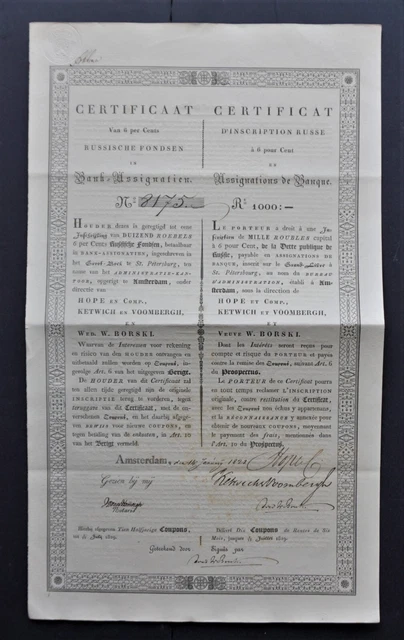 CERTIFICAAT
Van 6 per Cents
RUSSISCHE FONDSEN
IN
Bank-Assignatien.
No. 8175
HOUDER dezes is geregtigd tot eene
Inschrijving van DUIZEND ROEBELS
6 pet Cents Russische Fondsen, betaalbaar
in BANK-ASSIGNATIEN, ingeschreven in
het Groot-Boek te St. Petersburg, ten
name van het ADMINISTRATIE-KAN-
TOOR, opgerigt te Amsterdam, onder
directie van
HOPE EN COMP.,
KETWICH EN VOOMBERGH,
EN
WED. W. BORSKI.
Waarvan de Interessen voor rekening
en risico van den HOUDER ontvangen en
onbetaald zullen worden op Coupons, in-
gevolge Art. 6 van het uitgegeven Berigt.
De HOUDER van dit Certificaat zal
ten allen tijde geregtigd zijn de originele
INSCRIPTIE terug te vorderen, tegen
teruggave van dit Certificaat, met de
Coupons, en het daarbij afgege-
ven BEWIJS voor nieuwe COUPONS, en
tegen betaling van de onkosten, in Art. 10
van het Berigt vermeld.
CERTIFICAT
D'INSCRIPTION RUSSE
à 6 pour Cent
EN
Assignations de Banque.
Rs. 1000:—
LE PORTEUR a droit à une In-
scription de MILLE ROUBLES capital
à 6 pour Cent, de la Dette publique de
Russie, payable en ASSIGNATIONS DE
BANQUE, inscrit sur le Grand-Livre à
St. Pétersbourg, au nom du BUREAU
D'ADMINISTRATION, établi à Am-
sterdam, sous la direction de
HOPE ET COMP.,
KETWICH ET VOOMBERGH,
ET
VEUVE W. BORSKI.
Dont les Intérêts seront reçus pour
compte et risque du PORTEUR et payés
contre la remise des Coupons, suivant Art. 6
du Prospectus.
Le PORTEUR de ce Certificat pourra
en tout temps réclamer L'INSCRIPTION
originale, contre restitution du Certificat,
avec les Coupons non échus y appartenant,
et la RECONNAISSANCE y annexée pour
obtenir de nouveaux COUPONS, moyennant
le payement des frais, mentionnés dans
l'Art. 10 du Prospectus.
Amsterdam
Gezien bij mij
Notaris
Hope & Co
Ketwich & Voombergh
Hierbij uitgegeven Tien Halfjarige Coupons,
Délivré Dix Coupons de Rentes de Six
Mois,
Geteekend door
Signés par